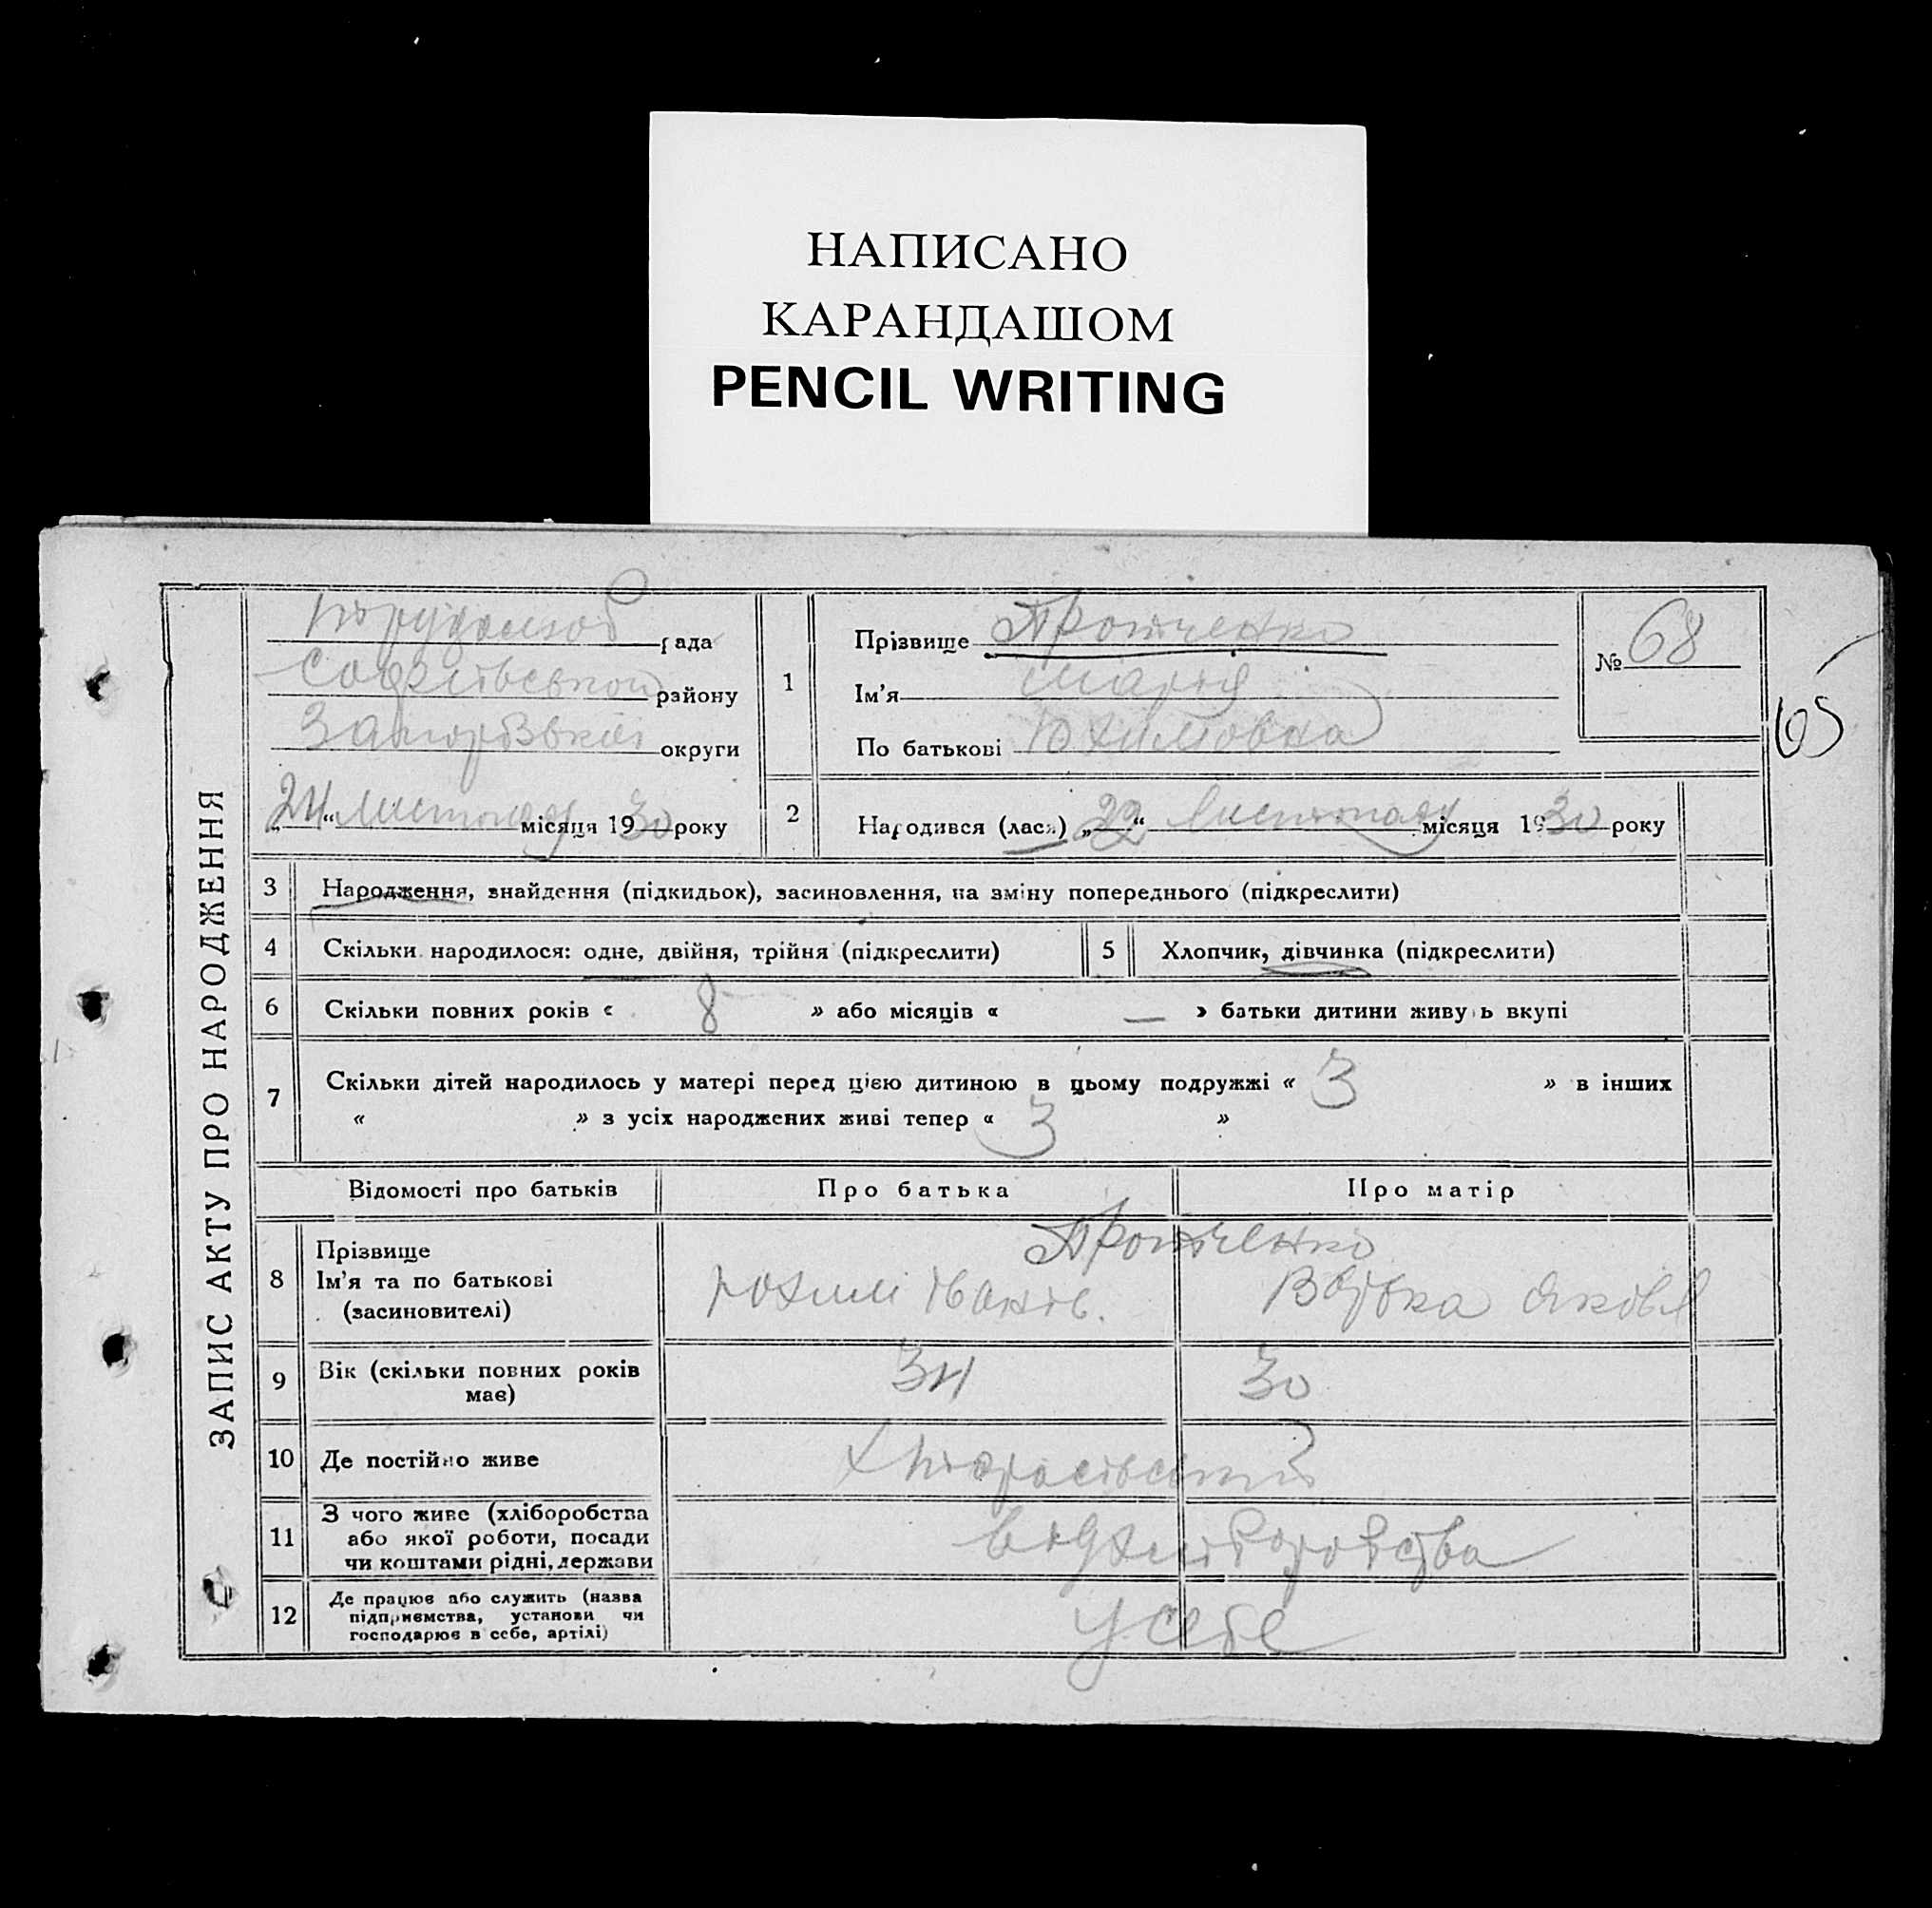 НАПИСАНО
КАРАНДАШОМ
PENCIL WRITING
ЗАПИС АКТУ ПРО НАРОДЖЕННЯ
рада
району
округи
24 листопаду місяця 1930 року
1
Прізвище Протченко
Ім'я Марія
По батькові Юхимовна
№ 68
65
2
Народився (лася) „22“ Листопаду місяця 1930 року
3 Народження, знайдення (підкидьок), засиновлення, на зміну попереднього (підкреслити)
4 Скільки народилося: одне, двійня, трійня (підкреслити)
5 Хлопчик, дівчинка (підкреслити)
6 Скільки повних років « 8 » або місяців « — » батьки дитини живуть вкупі
7 Скільки дітей народилось у матері перед цією дитиною в цьому подружжі « 3 » в інших
« » з усіх народжених живі тепер « 3 »
Відомості про батьків Про батька Про матір
8 Прізвище
Ім'я та по батькові
(засиновителі)
Протченко
Юхим Іванів. Явд
9 Вік (скільки повних років
має)
34 30
10 Де постійно живе
11 З чого живе (хліборобства
або якої роботи, посади
чи коштами рідні, держави
від хліборобства
12 Де працює або служить (назва
підприємства, установи чи
господарює в себе, артілі)
у себе